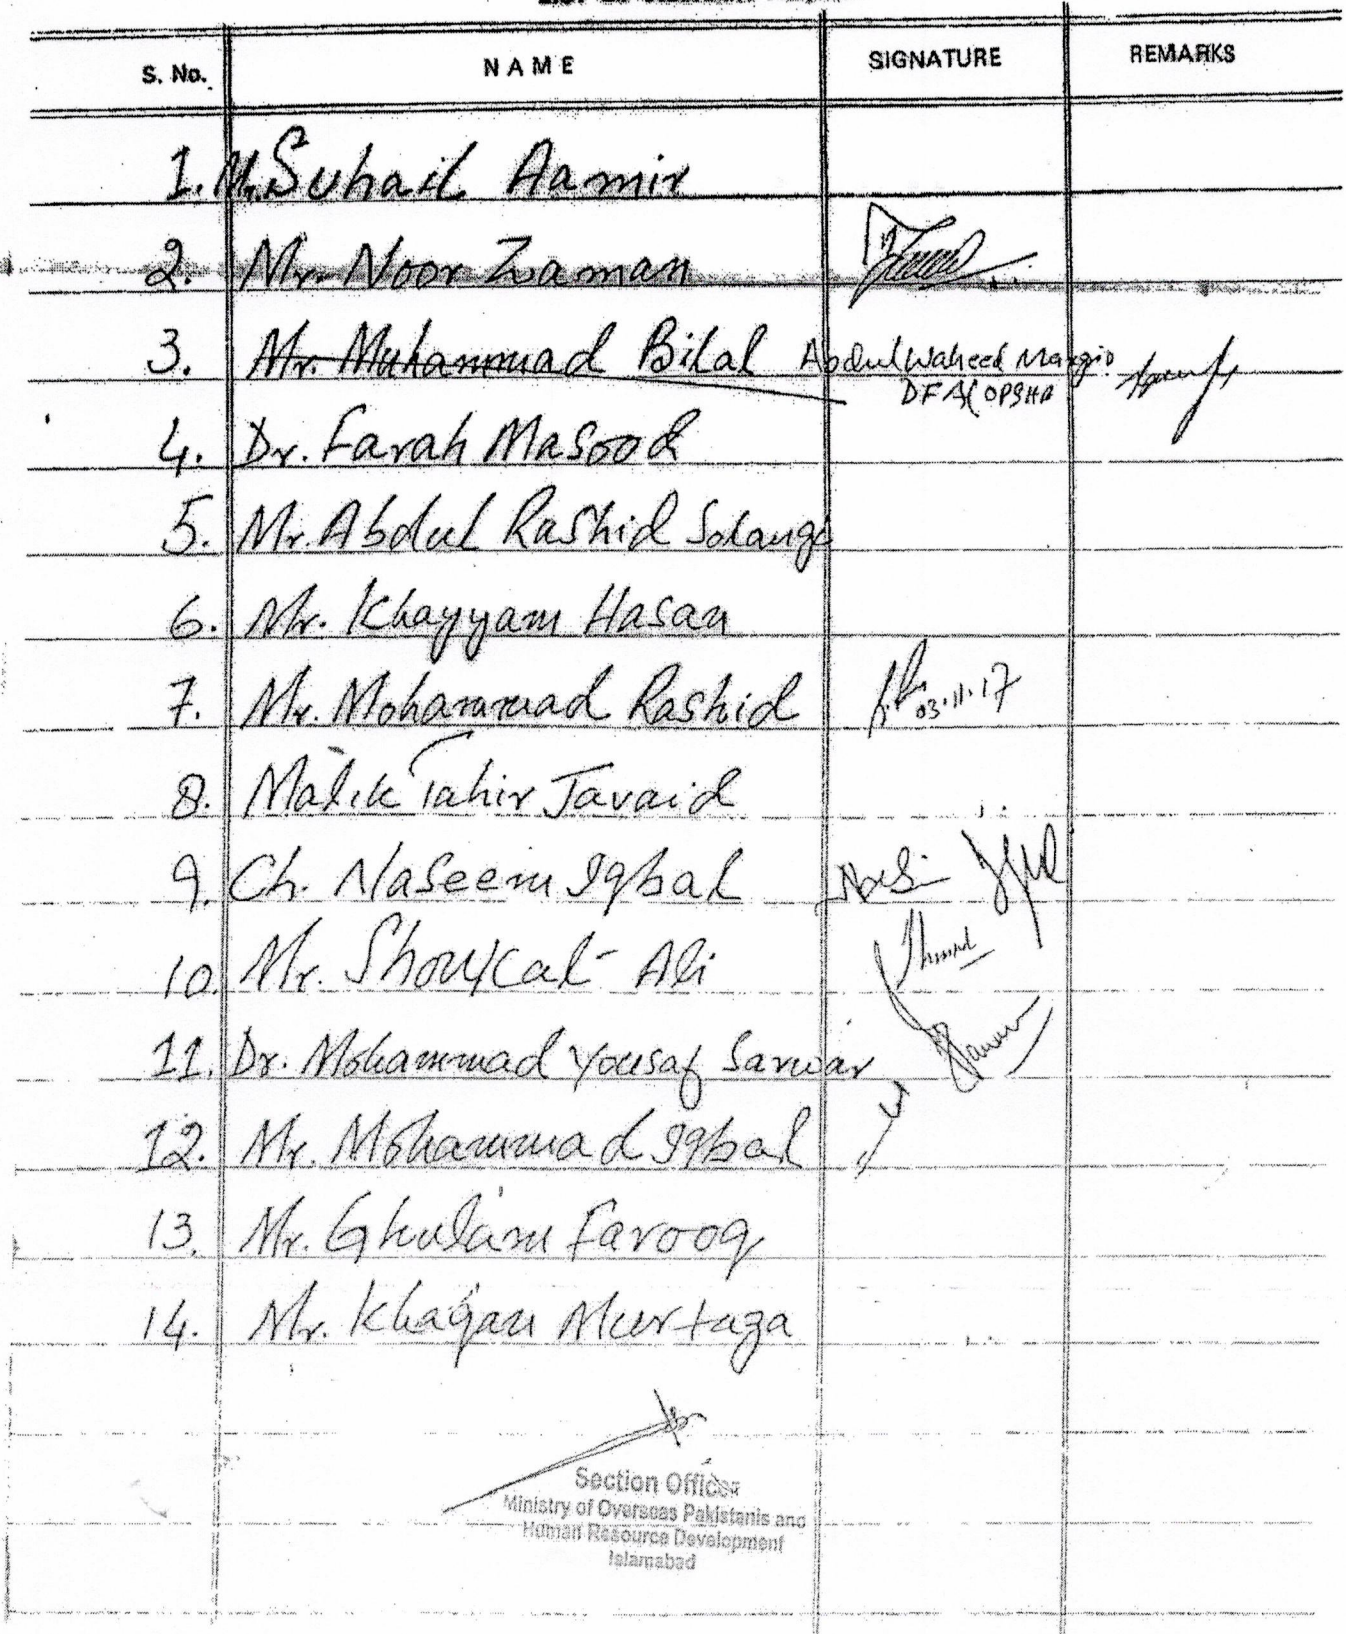 S. No. NAME SIGNATURE REMARKS
1. Mr. Suhail Aamir
2. Mr. Noor Zaman
3. Mr. Muhammad Bilal Abdul Waheed
DFA( OPSHA
4. Dr. Farah Masood
5. Mr. Abdul Rashid Solangi
6. Mr. Khayyam Hasan
7. Mr. Mohammad Rashid 03.11.17
8. Malik Tahir Javaid
9. Ch. Naseem Iqbal
10. Mr. Shoukat Ali
11. Dr. Mohammad Yousaf Sarwar
12. Mr. Mohammad Iqbal
13. Mr. Ghulam Farooq
14. Mr. Khaqan Murtaza
Section Officer
Ministry of Overseas Pakistanis and
Human Resource Development
Islamabad